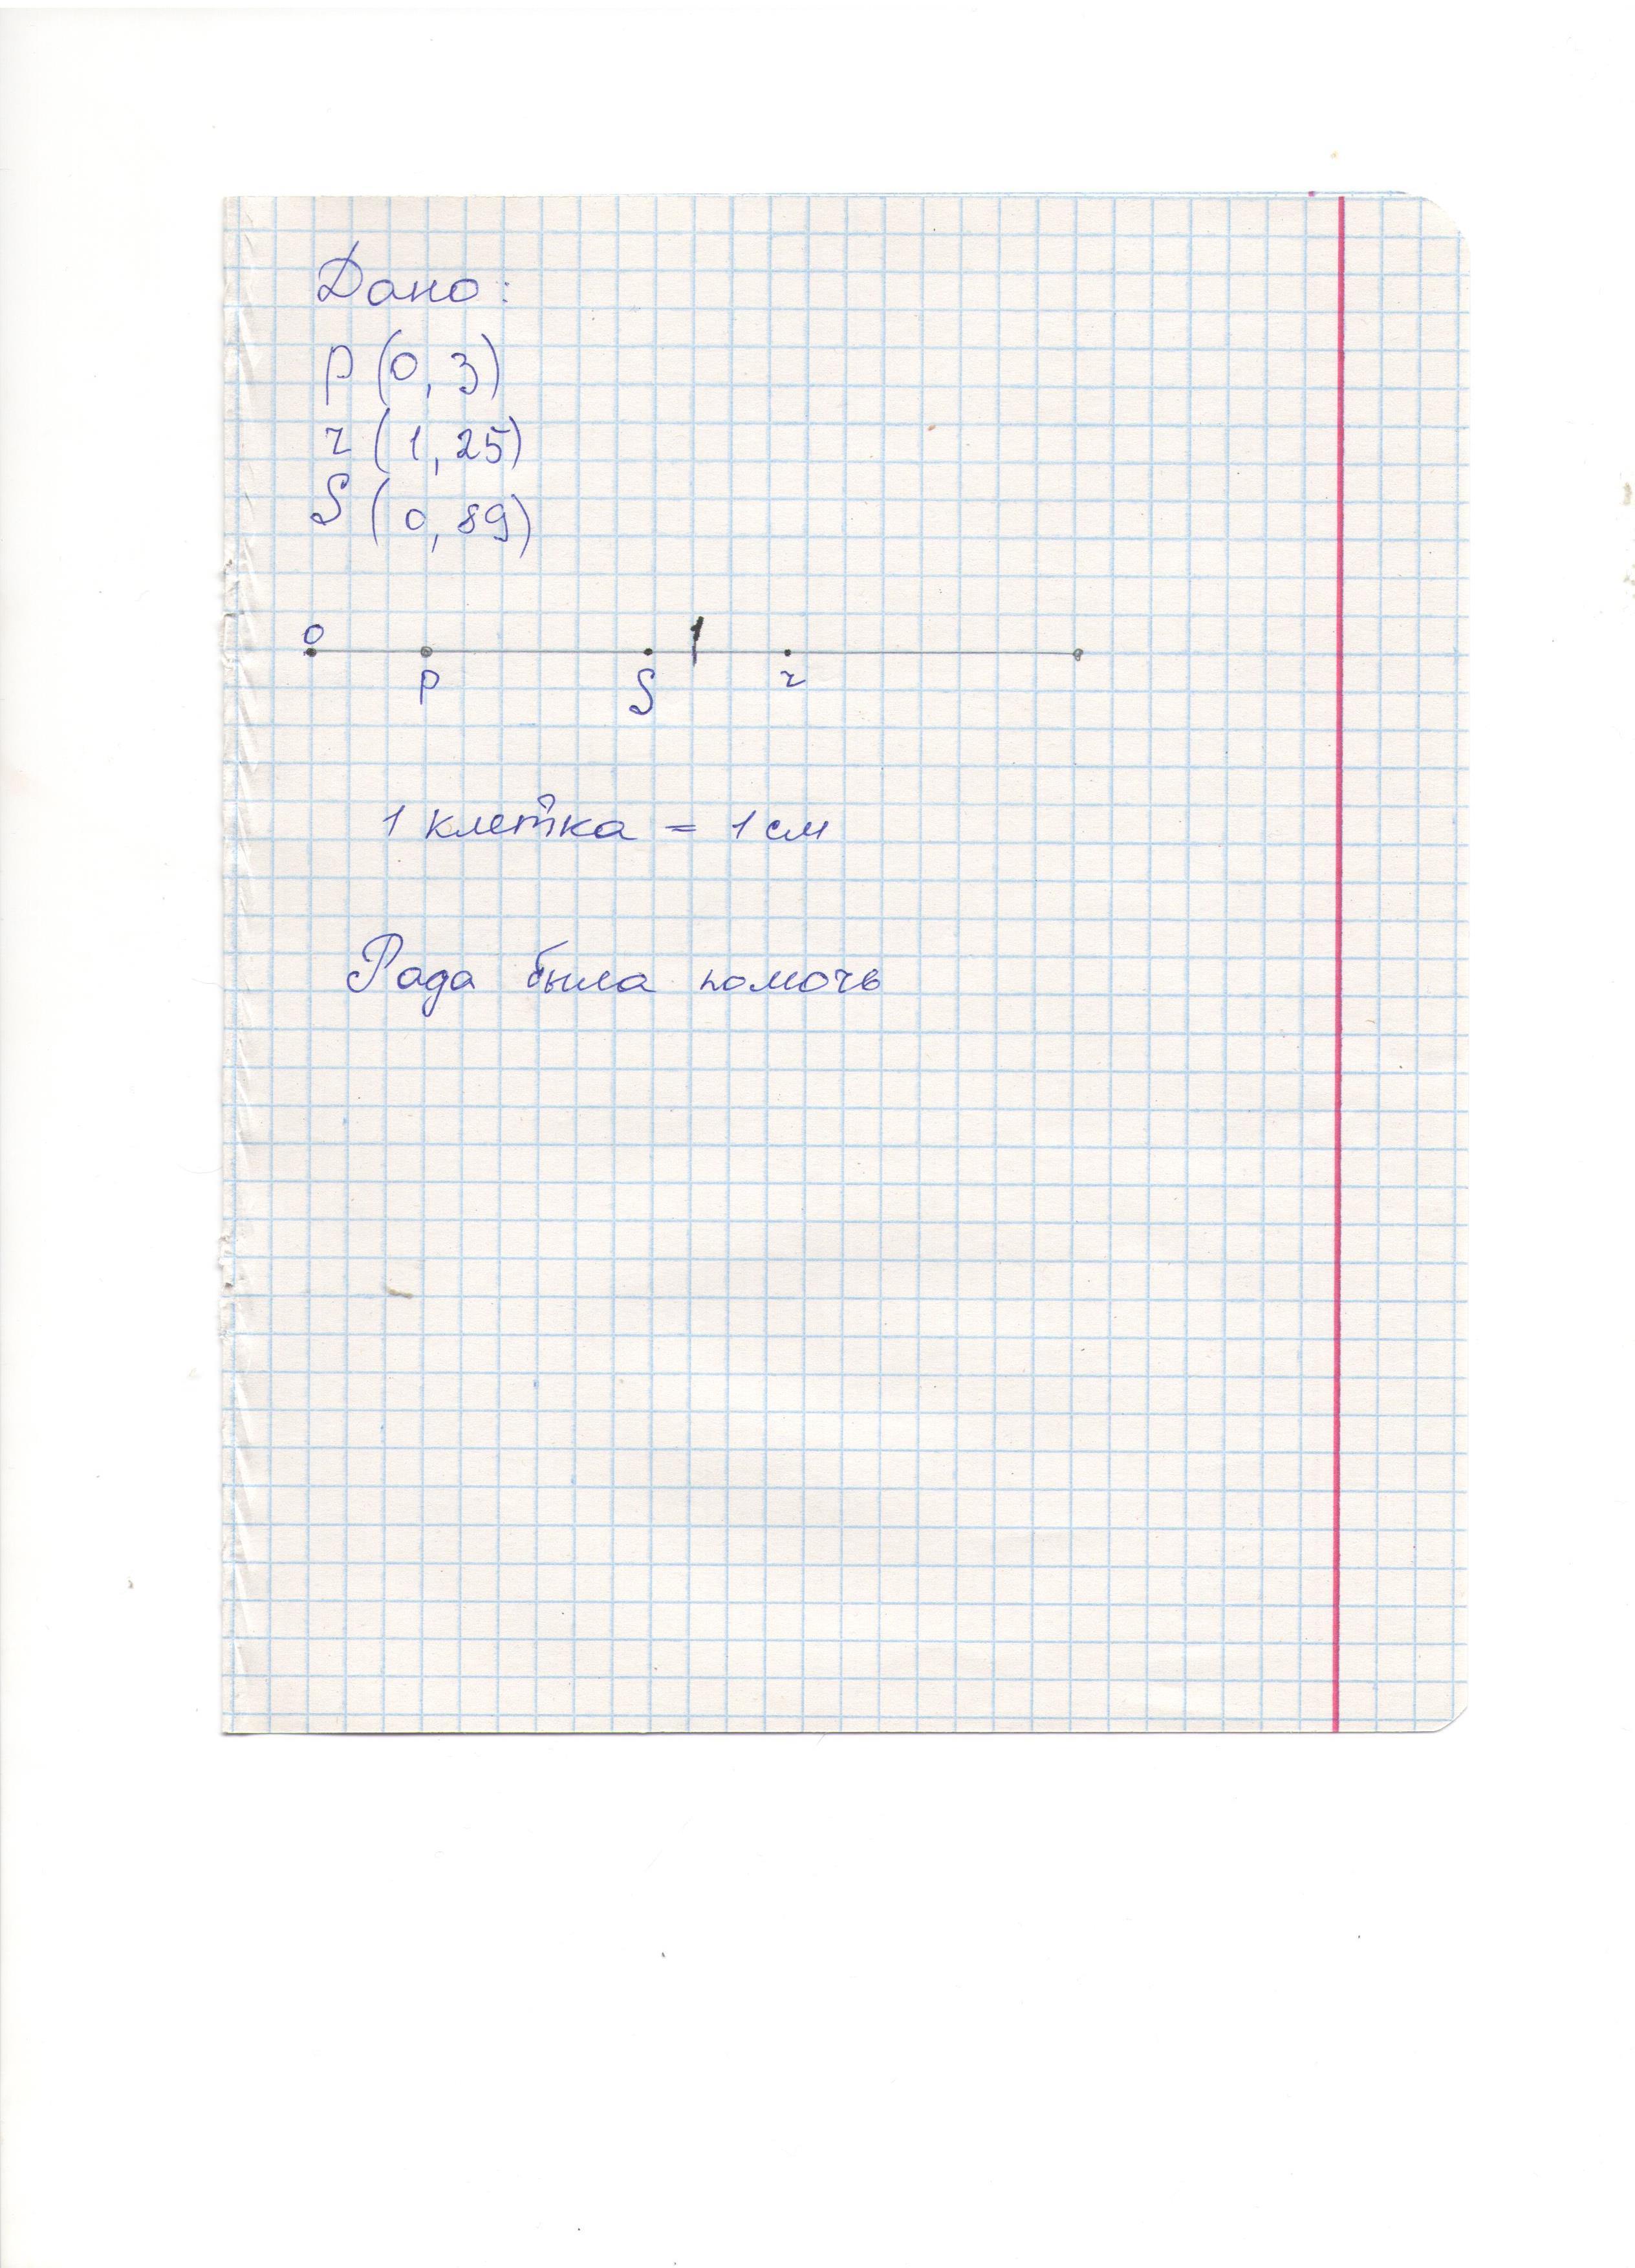 Дано:
p (0, 3)
r (1, 25)
S (0, 89)
0 1
p S r
1 клетка = 1 см
Рада была помочь